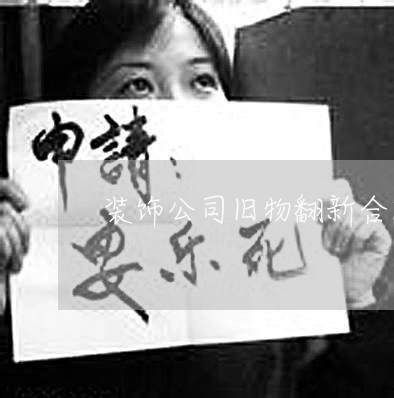 申請：
装饰公司旧物翻新合
安乐死